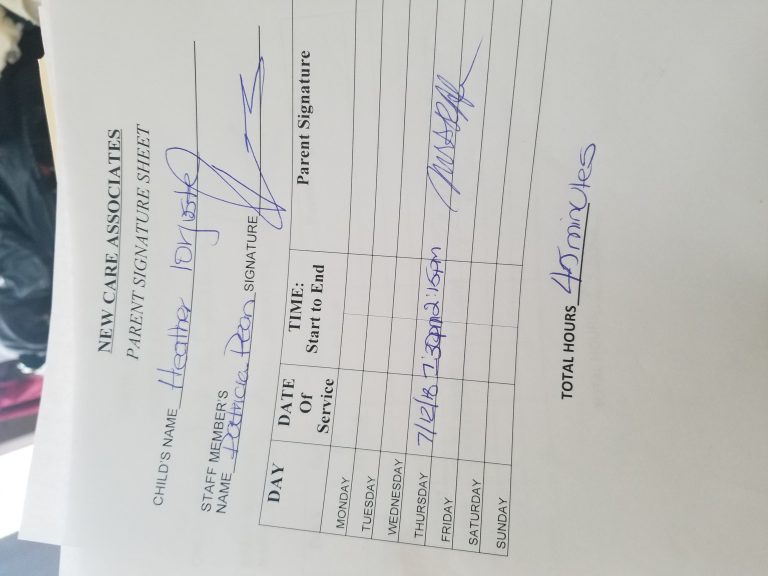 NEW CARE ASSOCIATES
PARENT SIGNATURE SHEET
CHILD'S NAME Heather
STAFF MEMBER'S
NAME Patricia Deon SIGNATURE
DAY DATE Of Service TIME: Start to End Parent Signature
MONDAY
TUESDAY
WEDNESDAY
THURSDAY 7/12/18 1:30pm 2:15pm
FRIDAY
SATURDAY
SUNDAY
TOTAL HOURS 45 minutes